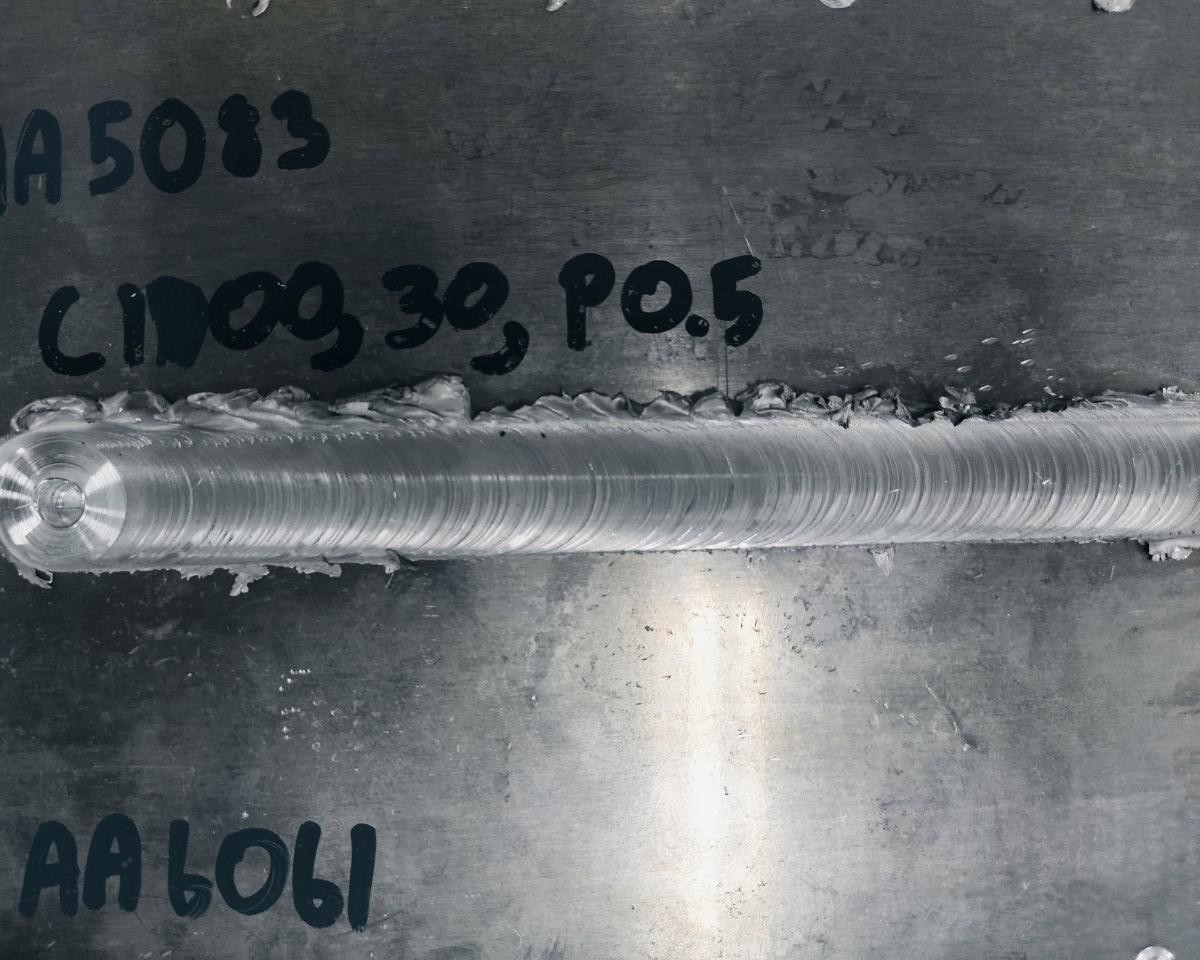 AA 5083
C1100, 30, P0.5
AA 6061